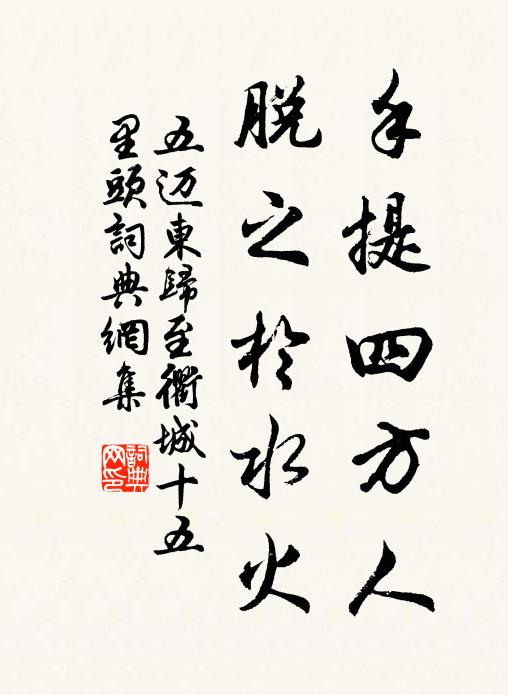 手提四方人
脱之於水火
五迈東歸至衢城十五
里頭詞典網集
詞典
网印